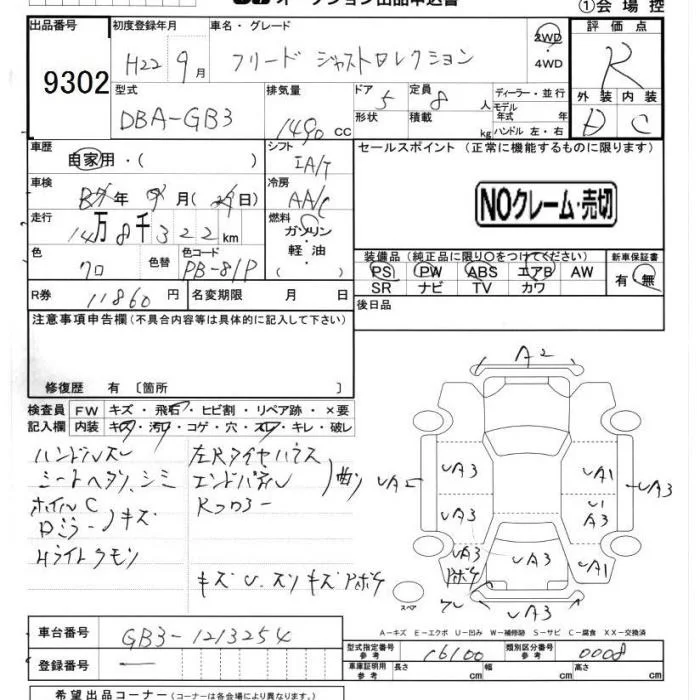 オークション出品申込書
①会場控
出品番号
9302
初度登録年月
H22 9月
車名・グレード
フリード ジャストセレクション
2WD
4WD
評価点
R
外装 内装
D C
型式
DBA-GB3
排気量
1490 CC
ドア
5
定員
8人
形状
積載
kg
ディーラー・並行
モデル
年式 年
ハンドル 左・右
車歴
自家用・( )
シフト
IA/T
セールスポイント (正常に機能するものに限ります)
NOクレーム・売切
車検
年 9月( 日)
冷房
AA/C
走行
14万8千322km
燃料
ガソリン
・
軽油
色
クロ
色替
色コード
PB-81P
装備品 (純正品に限り○をつけてください)
PS PW ABS エアB AW
SR ナビ TV カワ
新車保証書
有・無
R券 11860円
名変期限 月 日
後日品
注意事項申告欄(不具合内容等は具体的に記入して下さい)
修復歴 有〔箇所 〕
検査員
記入欄
FW キズ・飛石・ヒビ割・リペア跡・×要
内装 キズ・汚れ・コゲ・穴・スレ・キレ・破レ
ハンドルスレ
シートヘタリ、シミ
ホイルC
Dミラーキズ
Hライトクモリ
左Rタイヤハウス
エンドパネル
曲り
Rフロアー
キズ U.スリキズ アポケ
A2
A3
A3
A3
A1
A3
A3
A1
A3
A3
アポケ
スペア
A－キズ E－エクボ U－凹み W－補修跡 S－サビ C－腐食 XX－交換済
車台番号 GB3-1213254
登録番号 ー
型式指定番号
参考
16100
類別区分番号
参考
0008
車庫証明用
参考
長さ 幅 高さ
cm cm cm
希望出品コーナー (コーナーは各会場により異なります。)